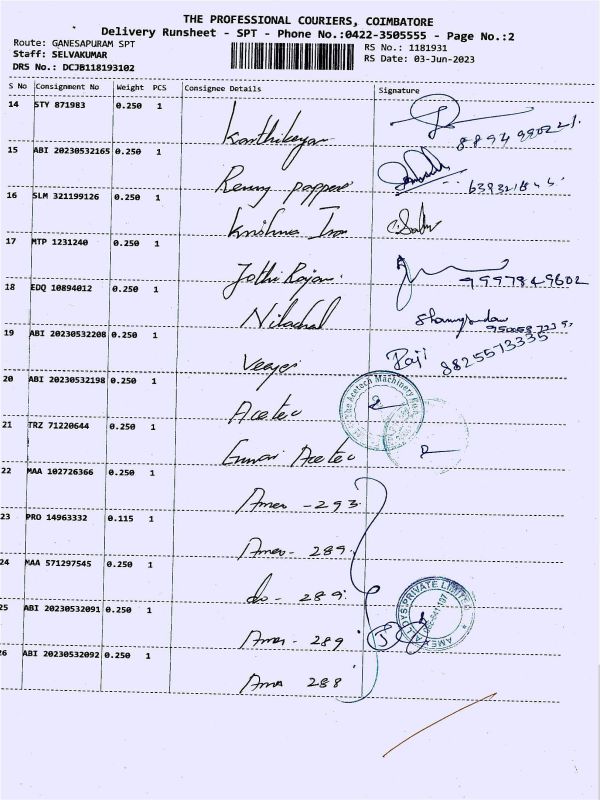 THE PROFESSIONAL COURIERS, COIMBATORE
Delivery Runsheet - SPT - Phone No.:0422-3505555 - Page No.:2
Route: GANESAPURAM SPT
Staff: SELVAKUMAR
DRS No.: DCJB118193102
RS No.: 1181931
RS Date: 03-Jun-2023
S No Consignment No Weight PCS Consignee Details Signature
14 STY 871983 0.250 1
Karthikeyan
15 ABI 20230532165 0.250 1
Remy
16 SLM 321199126 0.250 1
Krishna Iron
17 MTP 1231240 0.250 1
Jothi Rajan 9997849602
18 EDQ 10894012 0.250 1
Nilachal
19 ABI 20230532208 0.250 1
Raji 8825573335
20 ABI 20230532198 0.250 1
Acetec
Acetech Machinery
21 TRZ 71220644 0.250 1
Acetec
22 MAA 102726366 0.250 1
Amex - 293
23 PRO 14963332 0.115 1
Amex - 289
24 MAA 571297545 0.250 1
do - 289
25 ABI 20230532091 0.250 1
Amex - 289
ALLOYS PRIVATE LIMITED
26 ABI 20230532092 0.250 1
288